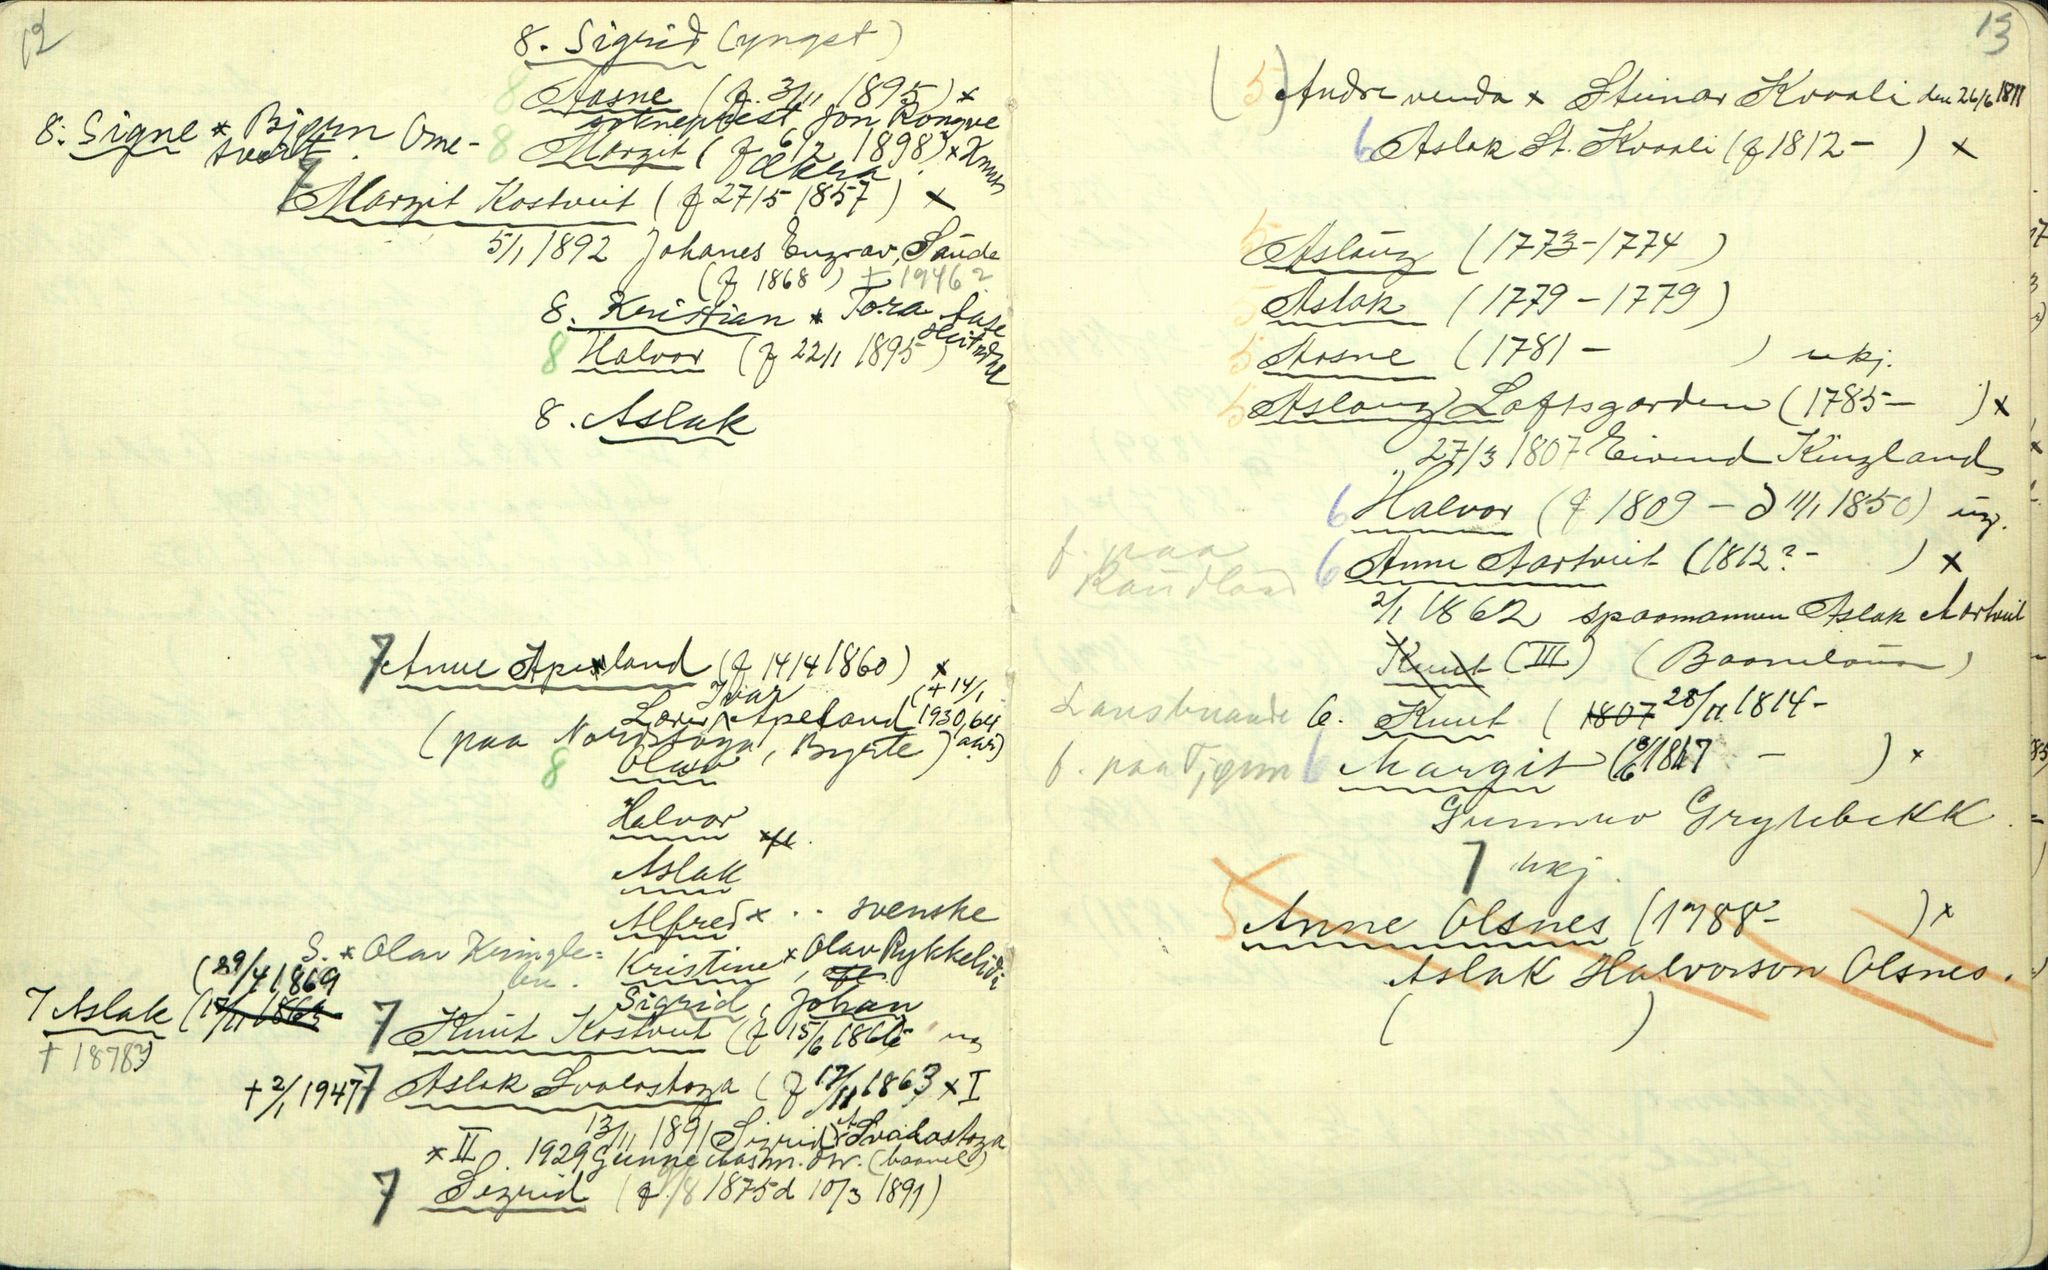 12
8. Sigrid (yngst)
8 Aasne (f. 3/11 1895) x
sokneprest Jon Rongve
8. Signe x Bjørn Ome-
tveit.
8 Margit (f 6/2 1898) x Knut
Økra
7 Margit Kostveit (f 27/5 1857) x
5/1 1892 Johanes Engrav, Saude
(f 1868) + 1946?
8. Kristian x Tora Aase
8 Halvor (f 22/1 1895)
8. Aslak
7 Anne Apeland (f 14/4 1860) x
Ivar (+ 14/1
Apeland 1930, 64
(paa Nordstoga, Byrte) aar)
8 Olav
Halvor
Aslak
Alfred x .. svenske
S. x Olav Kringle=
Kristine x Olav Rykkelid
Sigrid, Johan
(29/4 1869
7 Aslak (17/11 1863
+ 1878?)
7 Knut Kostveit (f 15/6 1866 ug
+ 2/1 1947 7 Aslak Svalastoga (f 17/11 1863 x I
13/11 1891 Sigrid A Svalastoga
x II. 1929 Gunne Aasm. (baarel)
7 Sigrid (f. /8 1875 d 10/3 1891)
13
(5) Andre venda x Steinar Kvaali den 26/6 1811
6 Aslak St. Kvaali (f 1812 - ) x
5 Aslaug (1773-1774)
5 Aslak (1779-1779)
5 Aasne (1781 - ) ukj.
5 Aslaug Loftsgarden (1785- ) x
27/3 1807 Eivind Kingland
6 Halvor (f 1809 - d 11/1 1850) ug.
f. paa
6 Anne Aartveit (1812? - ) x
2/1 1862 spaamannen Aslak Aartveit
Knut (III) (Baanlaus)
6. Knut (1807 28/11. 1814-
f. paa 6 Margit ( /6 1817 - ) x
Gunnuv Grytebekk
7 ukj.
5 Anne Olsnes (1788- ) x
Aslak Halvorson Olsnes.
( )